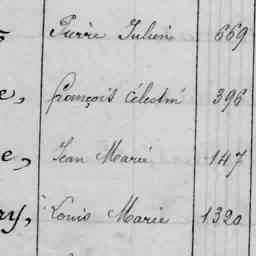 Pierre Julien 669
e, François Célestin 396
e, Jean Marie 147
ry, Louis Marie 1320